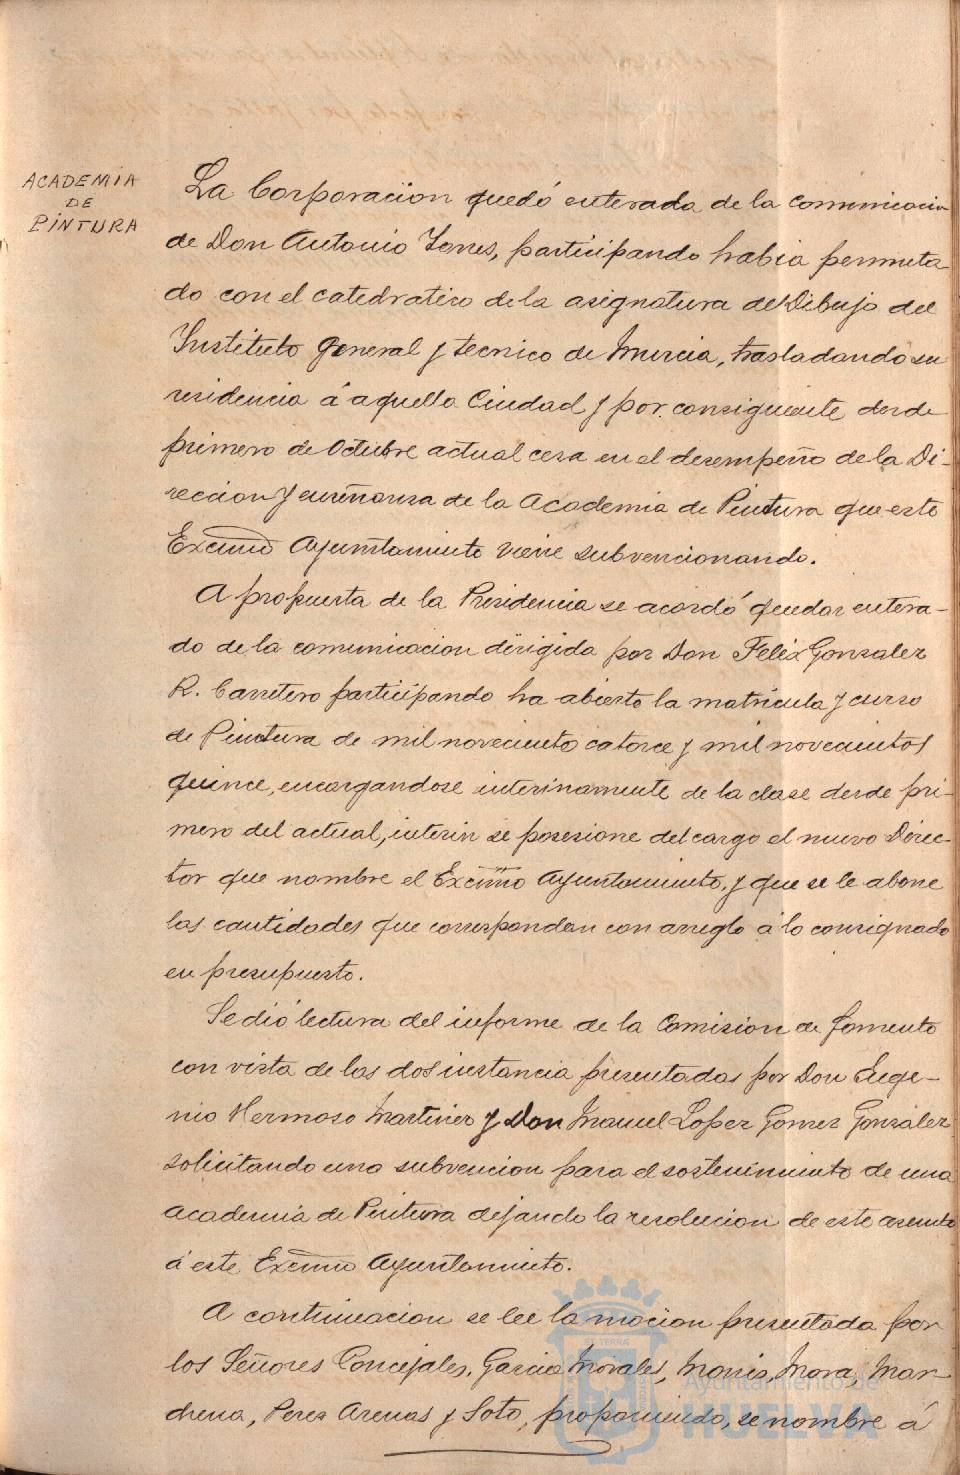 ACADEMIA
DE
PINTURA
La Corporacion quedó enterada de la comunicacion
de Don Antonio Torres, participando habia permuta-
do con el catedratico de la asignatura de Dibujo del
Instituto General y tecnico de Murcia, trasladando su
residencia á aquella Ciudad y por consiguiente desde
primero de Octubre actual cesa en el desempeño de la Di-
reccion y enseñansa de la Academia de Pintura que este
Excmo Ayuntamiento viene subvencionando.
A propuesta de la Presidencia se acordó quedar entera-
do de la comunicacion dirigida por Don Felix Gonzalez
R. Carretero participando ha abierto la matricula y curso
de Pintura de mil novecientos catorce y mil novecientos
quince, encargandose interinamente de la clase desde pri-
mero del actual, interin se posesione del cargo el nuevo Direc-
tor que nombre el Excmo Ayuntamiento, y que se le abone
las cantidades que correspondan con arreglo á lo consignado
en presupuesto.
Se dió lectura del informe de la Comision de fomento
con vista de las dos instancia presentadas por Don Euge-
nio Hermoso Martinez y Don Manuel Lopez Gomez Gonzalez
solicitando una subvencion para el sostenimiento de una
academia de Pintura dejando la resolucion de este asunto
á este Excmo Ayuntamiento.
A continuacion se lee la mocion presentada por
los Señores Concejales, Garcia Morales, Morris, Mora, Mar-
chena, Perez Arenas y Soto, proponiendo, se nombre á
Ayuntamiento de
HUELVA